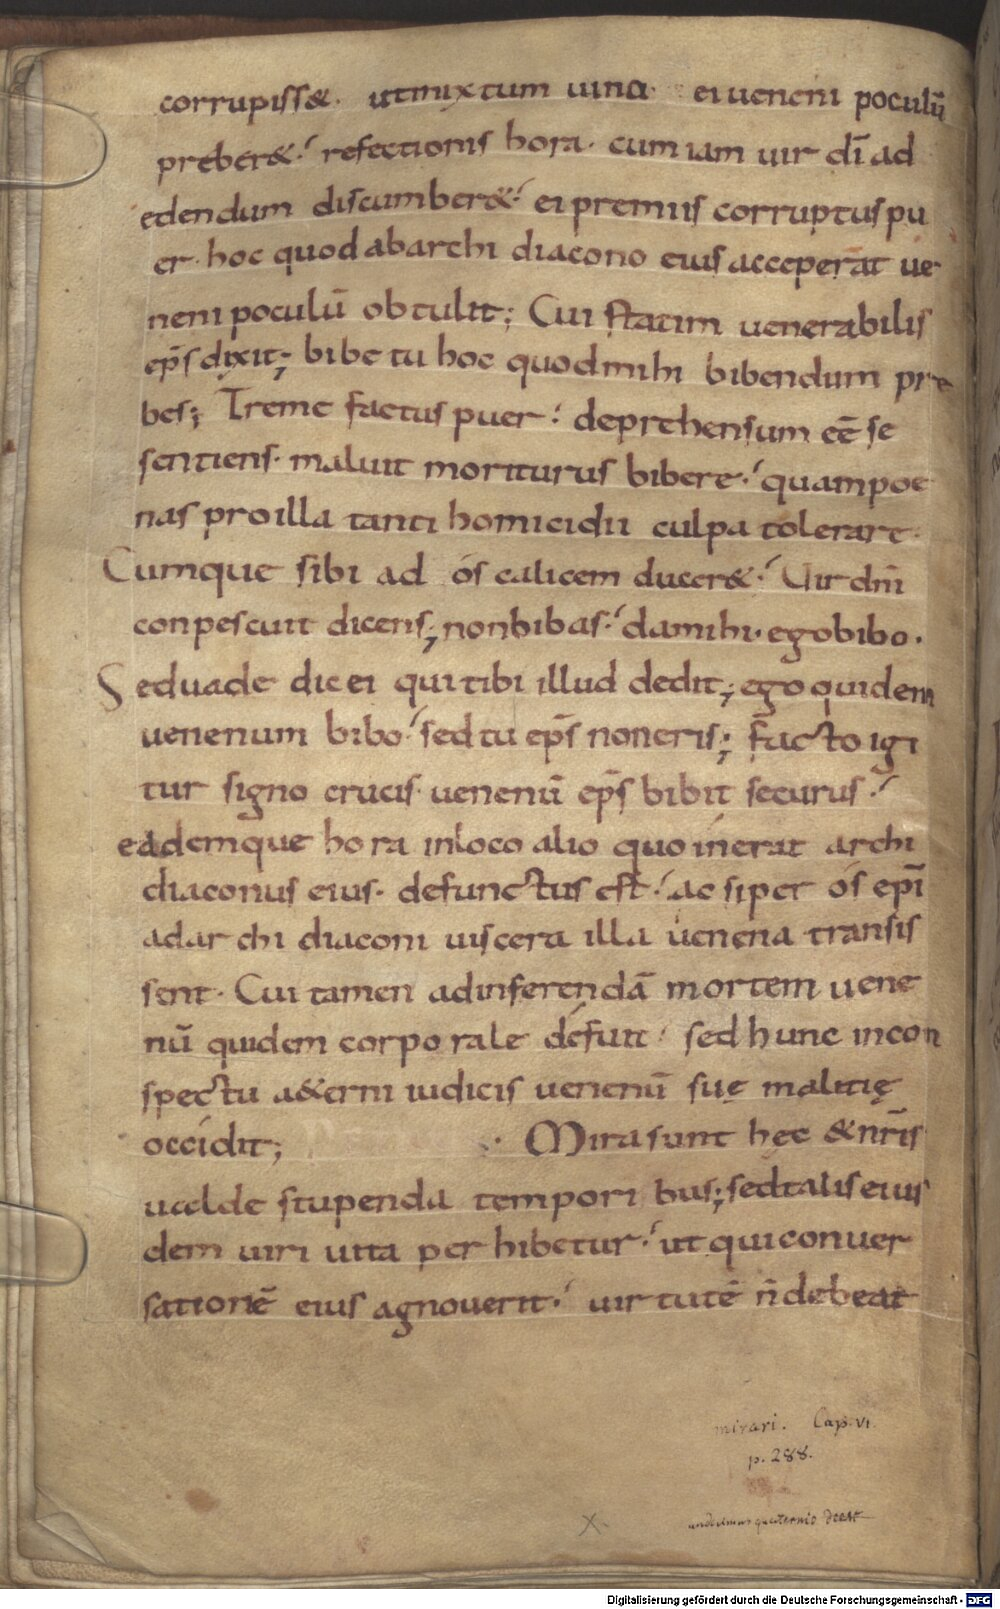 corrupiss&. ut mixtum uino ei ueneni poculū
preber&. refectionis hora. cum iam uir dī ad
edendum discumber&. ei premiis corruptus pu
er. hoc quod ab archi diacono eius acceperat ue
neni poculū obtulit; Cui statim uenerabilis
ep̄s dixit; bibe tu hoc quod mihi bibendum pre
bes; Treme factus puer. deprehensum eē se
sentiens. maluit moriturus bibere. quam poe
nas pro illa tanti homicidii culpa tolerare.
Cumque sibi ad ós calicem ducer&. Uir dn̄i
conpescuit dicens; non bibas. da mihi. ego bibo.
Sed uade dic ei qui tibi illud dedit; ego quidem
uenenum bibo. sed tu ep̄s non eris; facto igi
tur signo crucis. uenenū ep̄s bibit securus.
eademque hora in loco alio quo inerat archi
diaconus eius. defunctus est. ac si per ós ep̄i
ad archi diaconi uiscera illa uenena transis
sent. Cui tamen ad inferendā mortem uene
nū quidem corporale défuit. sed hunc in con
spectu a&erni iudicis uenenū suę malitię
occidit; Mira sunt hęc & nr̄is
ualde stupenda temporibus; sed talis eius
dem uiri uita perhibetur. ut qui conuer
sationē eius agnouerit. uirtutē n̄ debeat
mirari. Cap. VI.
p. 288.
undecimus quaternio deest
X
Digitalisierung gefördert durch die Deutsche Forschungsgemeinschaft - DFG